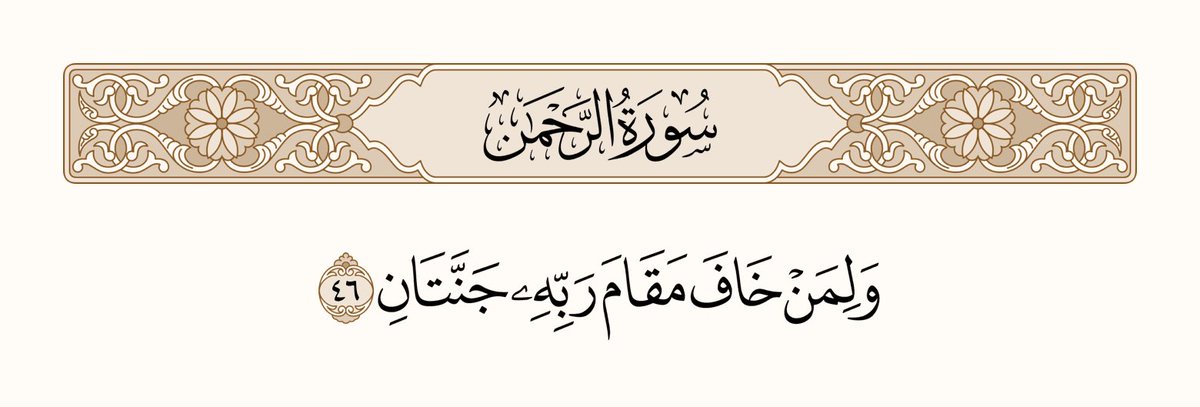 سُورَةُ الرَّحْمَٰن
وَلِمَنْ خَافَ مَقَامَ رَبِّهِۦ جَنَّتَانِ ٤٦